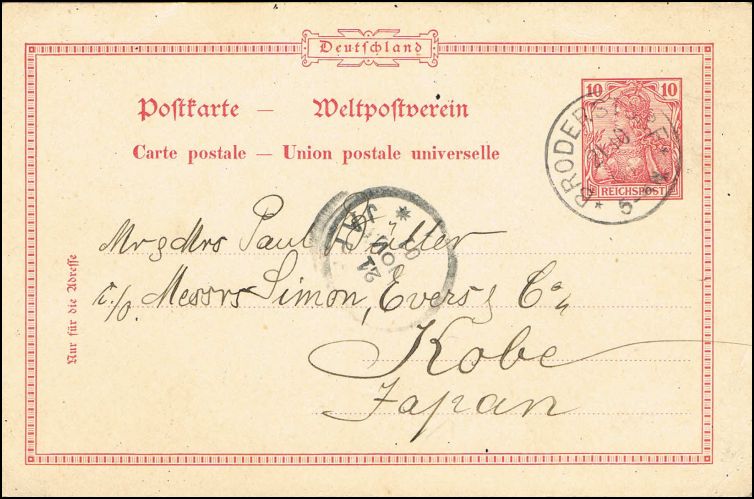 Deutschland
Postkarte — Weltpostverein
Carte postale — Union postale universelle
10 10
REICHSPOST
Mr & Mrs Paul
c/o. Messrs Simon, Evers & Co.
Kobe
Japan
Nur für die Adresse
21 NOV